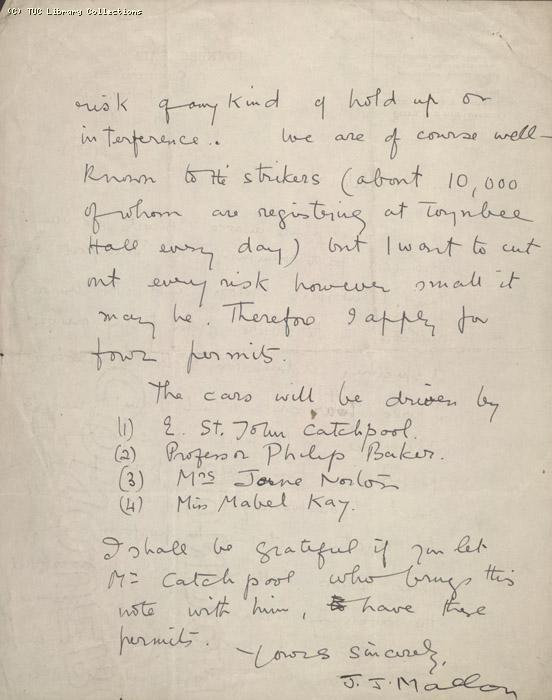 (C) TUC Library Collections
risk of any kind of hold up or
interference.. We are of course well-
known to the strikers (about 10,000
of whom are registering at Toynbee
Hall every day) but I want to cut
out every risk however small it
may be. Therefore I apply for
four permits.
The cars will be driven by
(1) E. St. John Catchpool.
(2) Professor Philip Baker.
(3) Mrs Jane Norton
(4) Miss Mabel Kay.
I shall be grateful if you let
Mr Catchpool who brings this
note with him, to have these
permits.
Yours sincerely,
J. J. Mallon